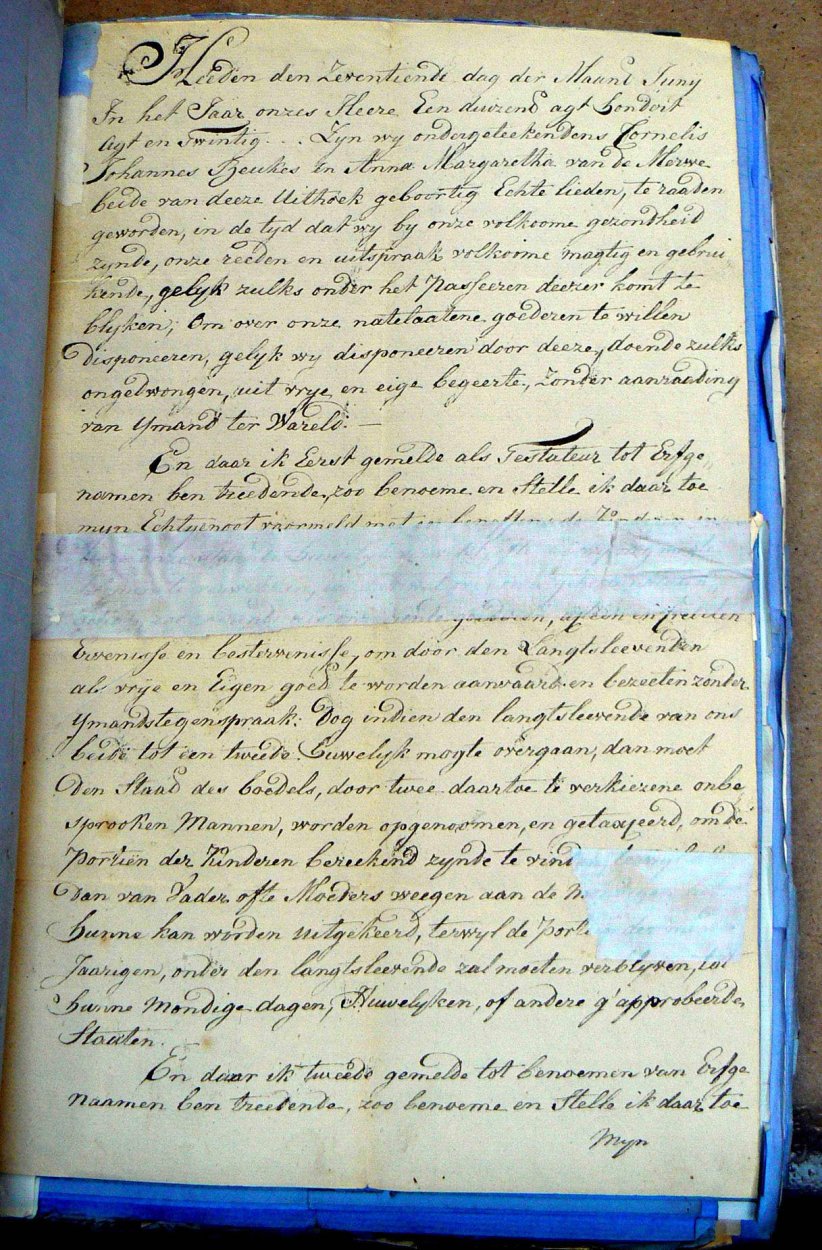 Heeden den Zeventiende dag der Maand Juny
In het Jaar onzes Heere Een duizend agt hondert
agt en twintig . . . Zyn wy ondergeteekendens Cornelis
Johannes Beukes en Anna Margaretha van de Merwe
beide van deeze Uithoek geboortig Echte lieden, te raaden
geworden, in de tyd dat wy by onze volkoome gezondheid
zynde, onze reeden en uitspraak volkoome magtig en gebrui-
kende, gelyk zulks onder het Passeeren deezer komt te
blyken, Om over onze natelaatene goederen te willen
disponeeren, gelyk wy disponeeren door deeze, doende zulks
ongedwongen, uit vrye en eige begeerte, Zonder aanraading
van ymand ter Wareld. —
En daar ik Eerst gemelde als Testateur tot Erfge-
namen ben treedende, zoo benoeme en Stelle ik daar toe
myn Echtgenoot voormeld met en beneffens de Kinderen
Ervenisse en bestervenisse, om door den Langtsleevenden
als vrye en Eigen goed te worden aanvaard en bezeeten zonder
ymands tegenspraak: Dog indien den langtsleevende van ons
beide tot een tweede huwelyk mogte overgaan, dan moet
Den Staad des boedels, door twee daartoe te verkiezene onbe
sprooken Mannen, worden opgenoomen, en getaxeerd, om de
Portien der Kinderen bereekend zynde te vinden
Dan van Vader ofte Moeders weegen aan de
hunne kan worden uitgekeerd, terwyl de
Jaarigen, onder den langtsleevende zal moeten verblyven, tot
hunne mondige dagen, Huwelyken, of andere g'approbeerde
Staaten. —
En daar ik tweede gemelde tot benoemen van Erfge
naamen ben treedende, zoo benoeme en Stelle ik daar toe
Myn